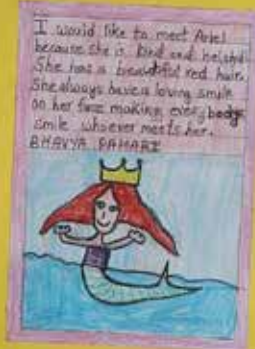 I would like to meet Ariel
because she is kind and helpful.
She has a beautiful red hair.
She always have a loving smile
on her face making everybody
smile whoever meets her.
BHAVYA PAHARI